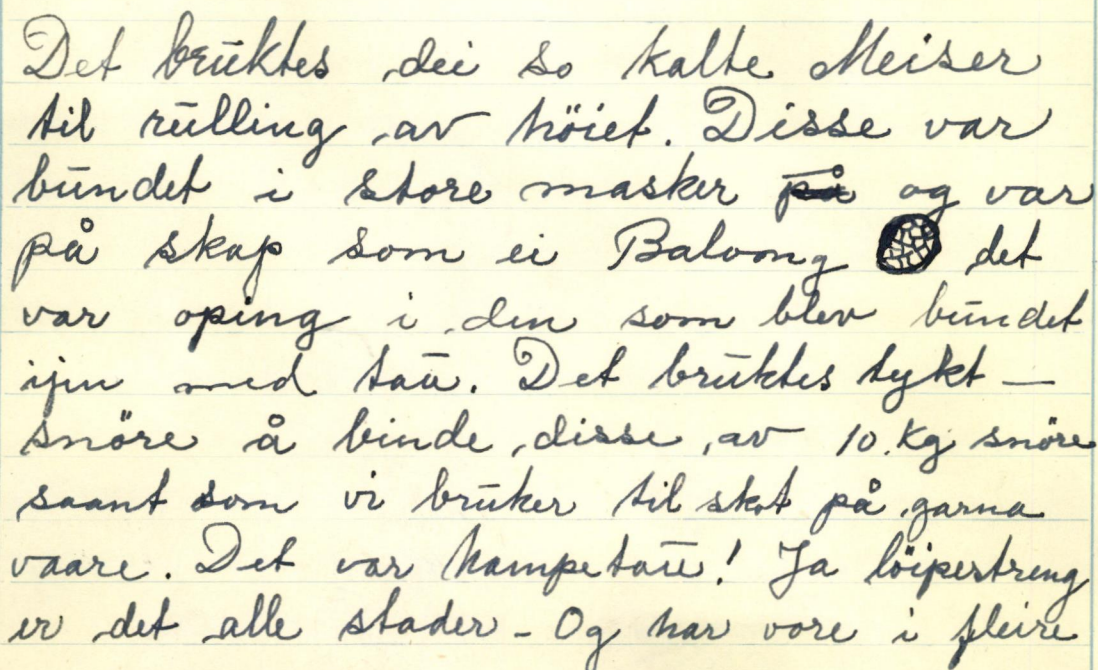 Det bruktes dei so kalte Meiser
til rulling av höiet. Disse var
bundet i store masker på og var
på skap som ei Baloong det
var oping i den som blev bundet
ijen med tau. Det bruktes tykt —
snöre å binde disse av 10. kg snöre
saant som vi bruker til skot på garna
vaare. Det var hampetau! Ja löipestreng
er det alle stader - Og har vore i fleire